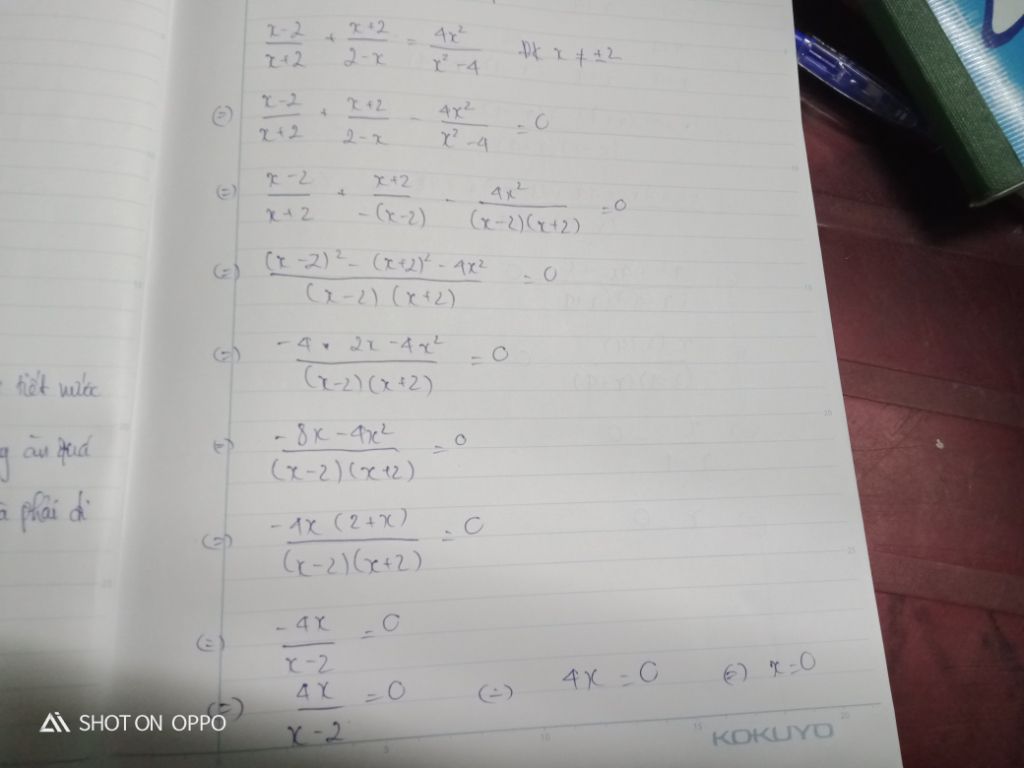 \frac{x-2}{x+2} + \frac{x+2}{2-x} = \frac{4x^2}{x^2-4} ĐK x ≠ ±2
(=) \frac{x-2}{x+2} + \frac{x+2}{2-x} - \frac{4x^2}{x^2-4} = 0
(=) \frac{x-2}{x+2} + \frac{x+2}{-(x-2)} - \frac{4x^2}{(x-2)(x+2)} = 0
(=) \frac{(x-2)^2 - (x+2)^2 - 4x^2}{(x-2)(x+2)} = 0
(=) \frac{-4 . 2x - 4x^2}{(x-2)(x+2)} = 0
(=) \frac{-8x - 4x^2}{(x-2)(x+2)} = 0
(=) \frac{-4x(2+x)}{(x-2)(x+2)} = 0
(=) \frac{-4x}{x-2} = 0
(=) \frac{4x}{x-2} = 0 (=) 4x = 0 (=) x = 0
tiết nước
ăn quá
phải đi
KOKUYO
SHOT ON OPPO